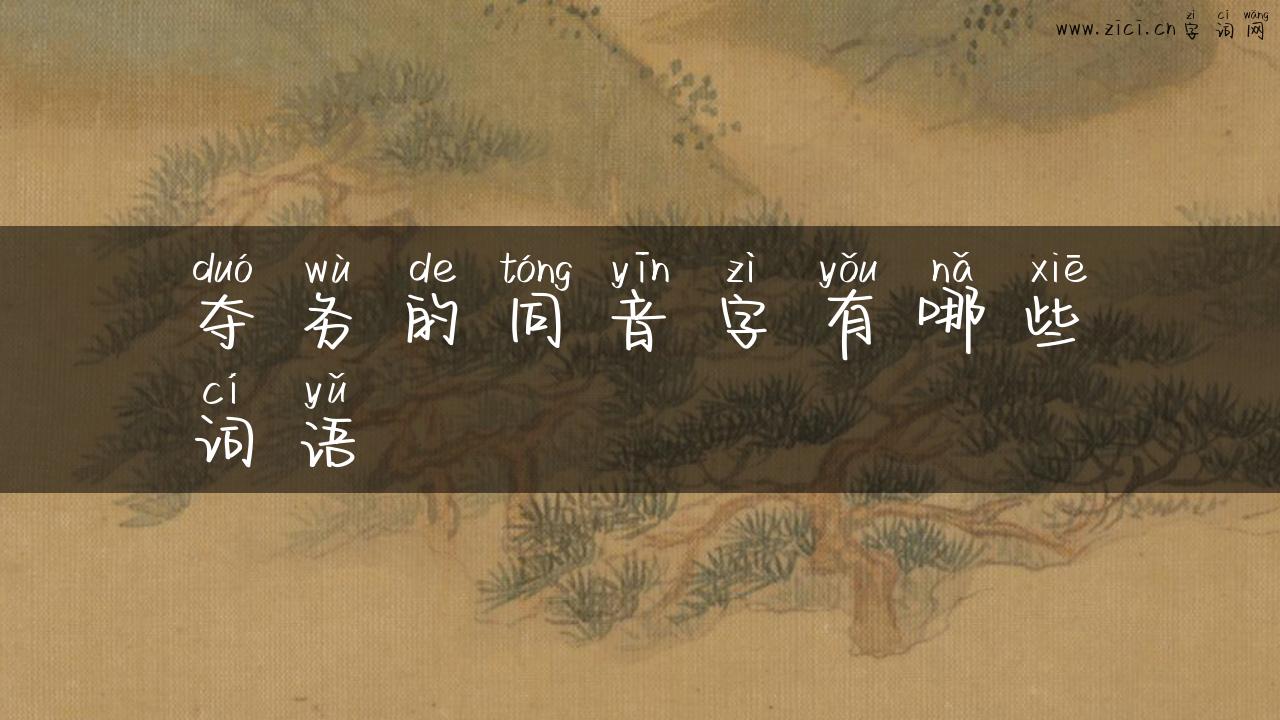 zì cí wǎng
www.zīcī.cn 字词网
duó wù de tóng yīn zì yǒu nǎ xiē
夺务的同音字有哪些
cí yǔ
词语